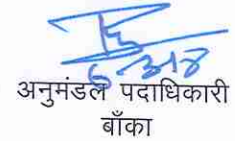 अनुमंडल पदाधिकारी
बाँका